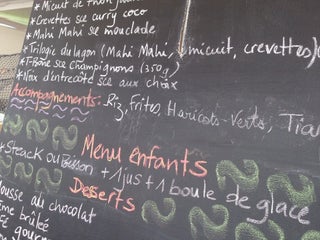 * Micuit de thon
* Crevettes sce curry coco
* Mahi Mahi sce mouclade
* Trilogie du lagon (Mahi Mahi, micuit, crevettes)
* T-Bone sce Champignons (350g)
* Noix d'entrecôte sce aux choix
Accompagnements: Riz, Frites, Haricots-Verts,
Menu enfants
* Steack ou + 1 jus + 1 boule de glace
Desserts
ousse au chocolat
ème brûlée